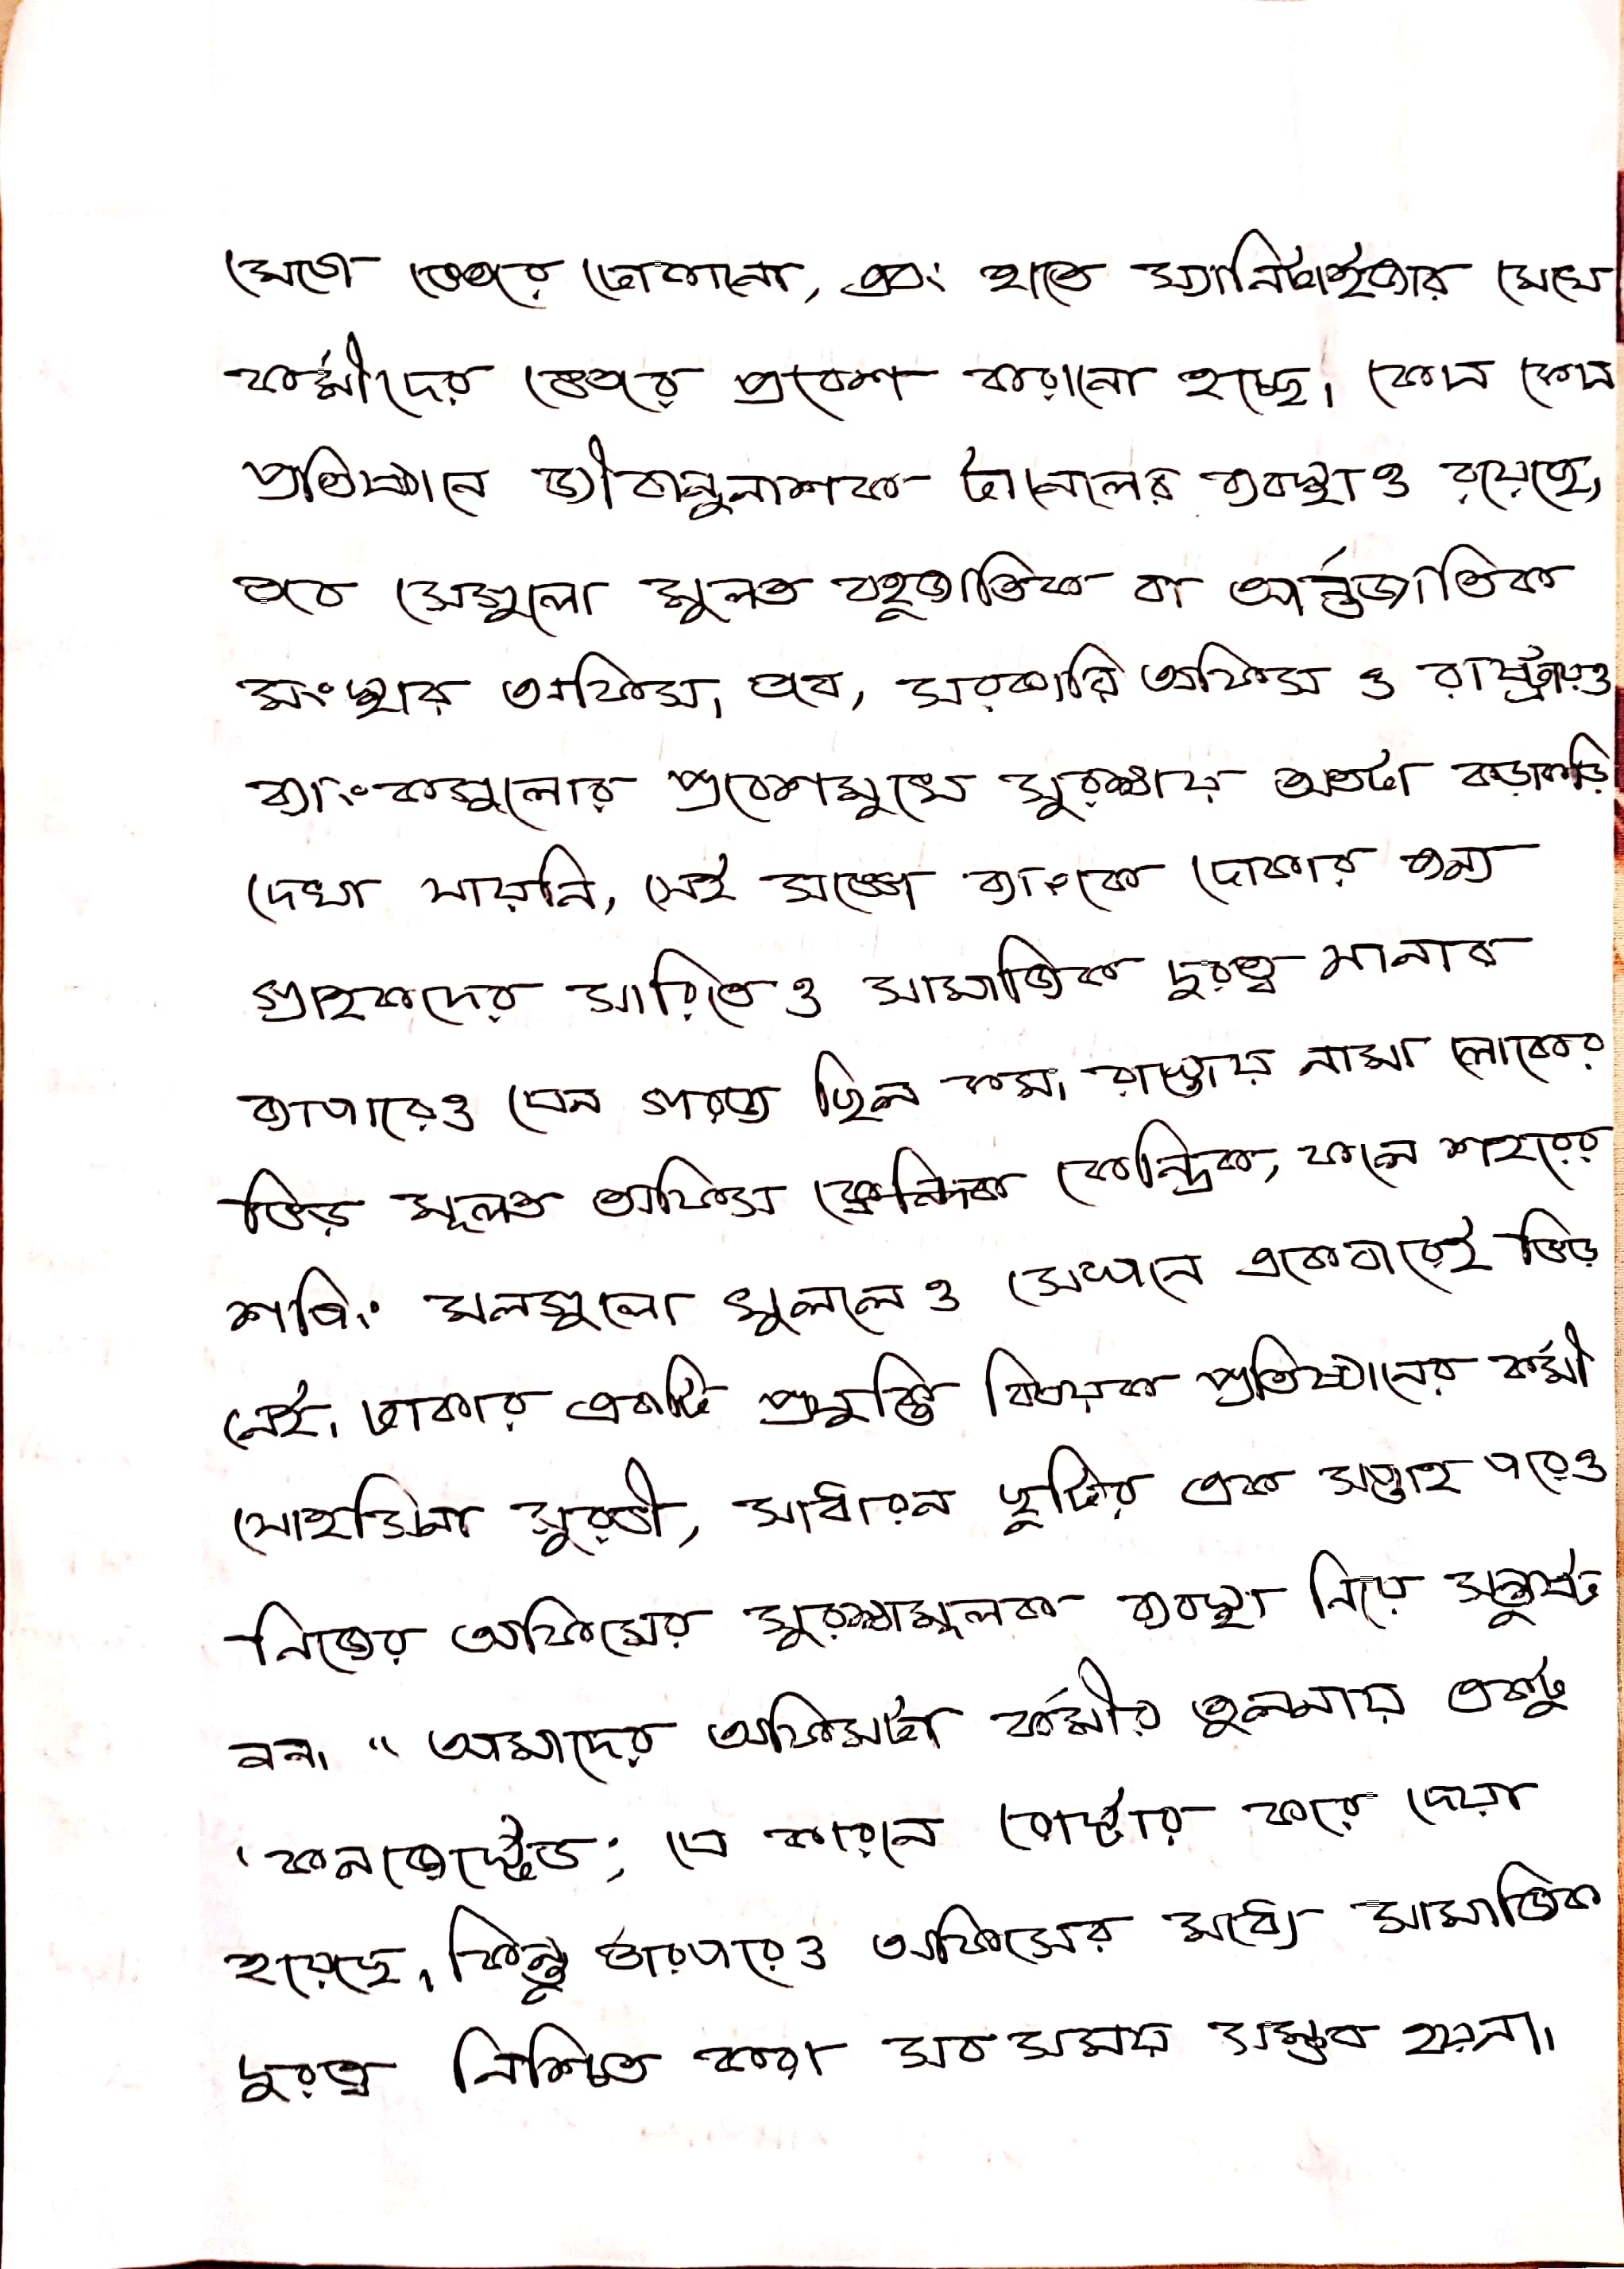 মেপে ভেতরে ঢোকানো, এবং হাতে স্যানিটাইজার মেখে
কর্মীদের ভেতরে প্রবেশ করানো হচ্ছে। কোন কোন
প্রতিষ্ঠানে জীবানুনাশক টানেলের ব্যবস্থাও রয়েছে,
তবে সেগুলো মুলত বহুজাতিক বা আর্ন্তজাতিক
সংস্থার অফিস। তবে, সরকারি অফিস ও রাষ্ট্রায়ত্ত
ব্যাংকগুলোর প্রবেশমুখে সুরক্ষায় অতটা কড়াকড়ি
দেখা যায়নি, সেই সঙ্গে ব্যাংকে ঢোকার জন্য
গ্রাহকদের সারিতেও সামাজিক দুরত্ব মানার
ব্যাপারেও যেন গরজ ছিল কম। রাস্তায় নামা লোকের
ভিড় মূলত অফিস কেন্দ্রিক, ফলে শহরের
শপিং মলগুলো খুললেও সেখানে একেবারেই ভিড়
নেই। ঢাকার একটি প্রযুক্তি বিষয়ক প্রতিষ্ঠানের কর্মী
মোহসিনা সুরভী, সাধারন ছুটির এক সপ্তাহ পরেও
নিজের অফিসের সুরক্ষামূলক ব্যবস্থা নিয়ে সন্তুষ্ট
নন। "আমাদের অফিসটা কর্মীর তুলনায় একটু
'কনজেস্টেড; যে কারনে রোস্টার করে দেয়া
হয়েছে। কিন্তু তারপরেও অফিসের মধ্যে সামাজিক
দুরত্ব নিশ্চিত করা সব সময় সম্ভব হয়না।